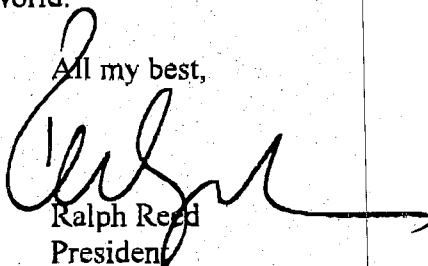 world.
All my best,
Ralph Reed
President